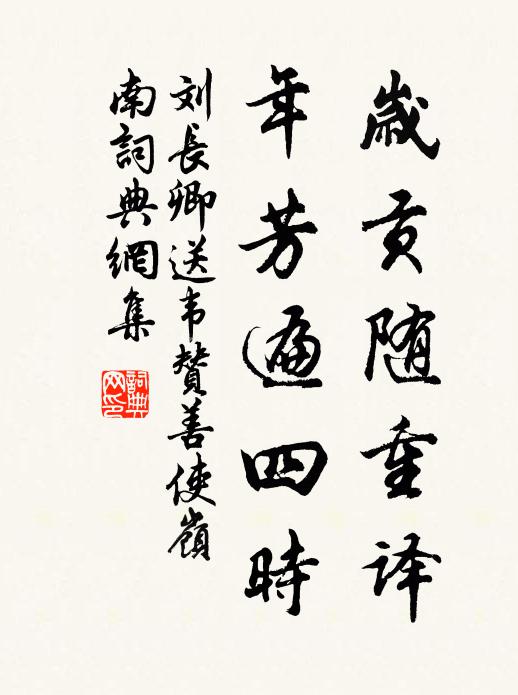 歲貢随重译
年芳遍四時
刘長卿送韦贊善使嶺
南詞典網集
詞典网印